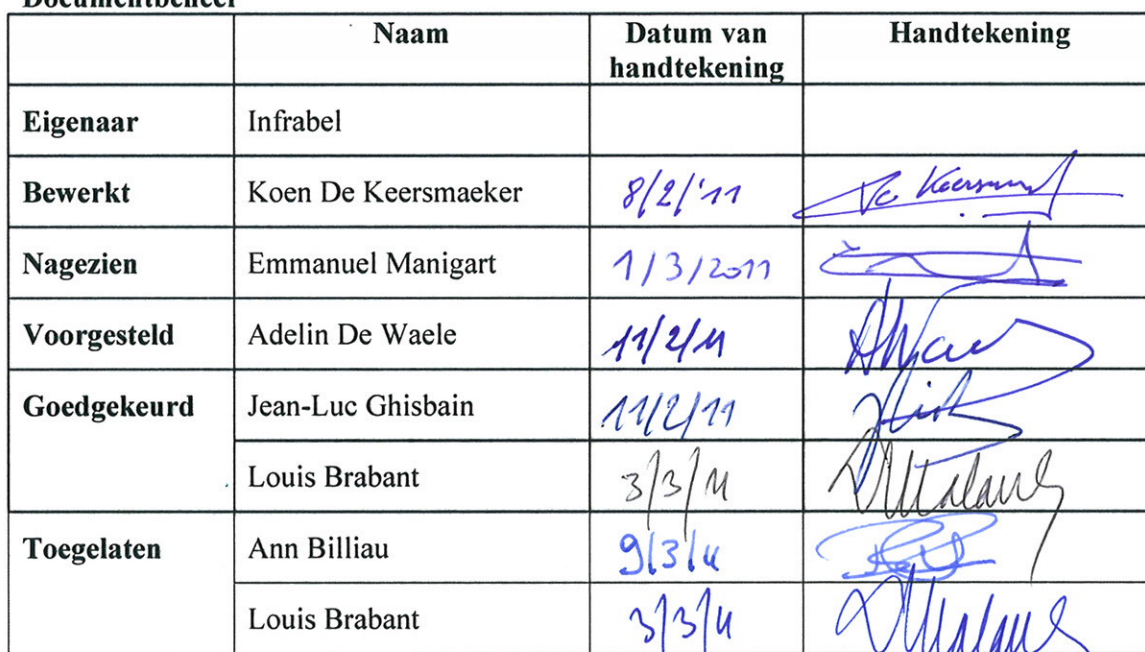 Documentbeheer
Naam Datum van handtekening Handtekening
Eigenaar Infrabel
Bewerkt Koen De Keersmaeker 8/2/'11
Nagezien Emmanuel Manigart 1/3/2011
Voorgesteld Adelin De Waele 11/2/11
Goedgekeurd Jean-Luc Ghisbain 11/2/11
Louis Brabant 3/3/11
Toegelaten Ann Billiau 9/3/11
Louis Brabant 3/3/11